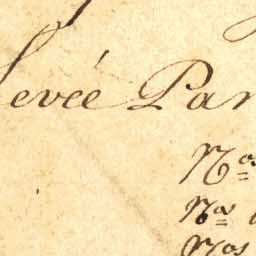 levée Par
Nos
Nos
Nos